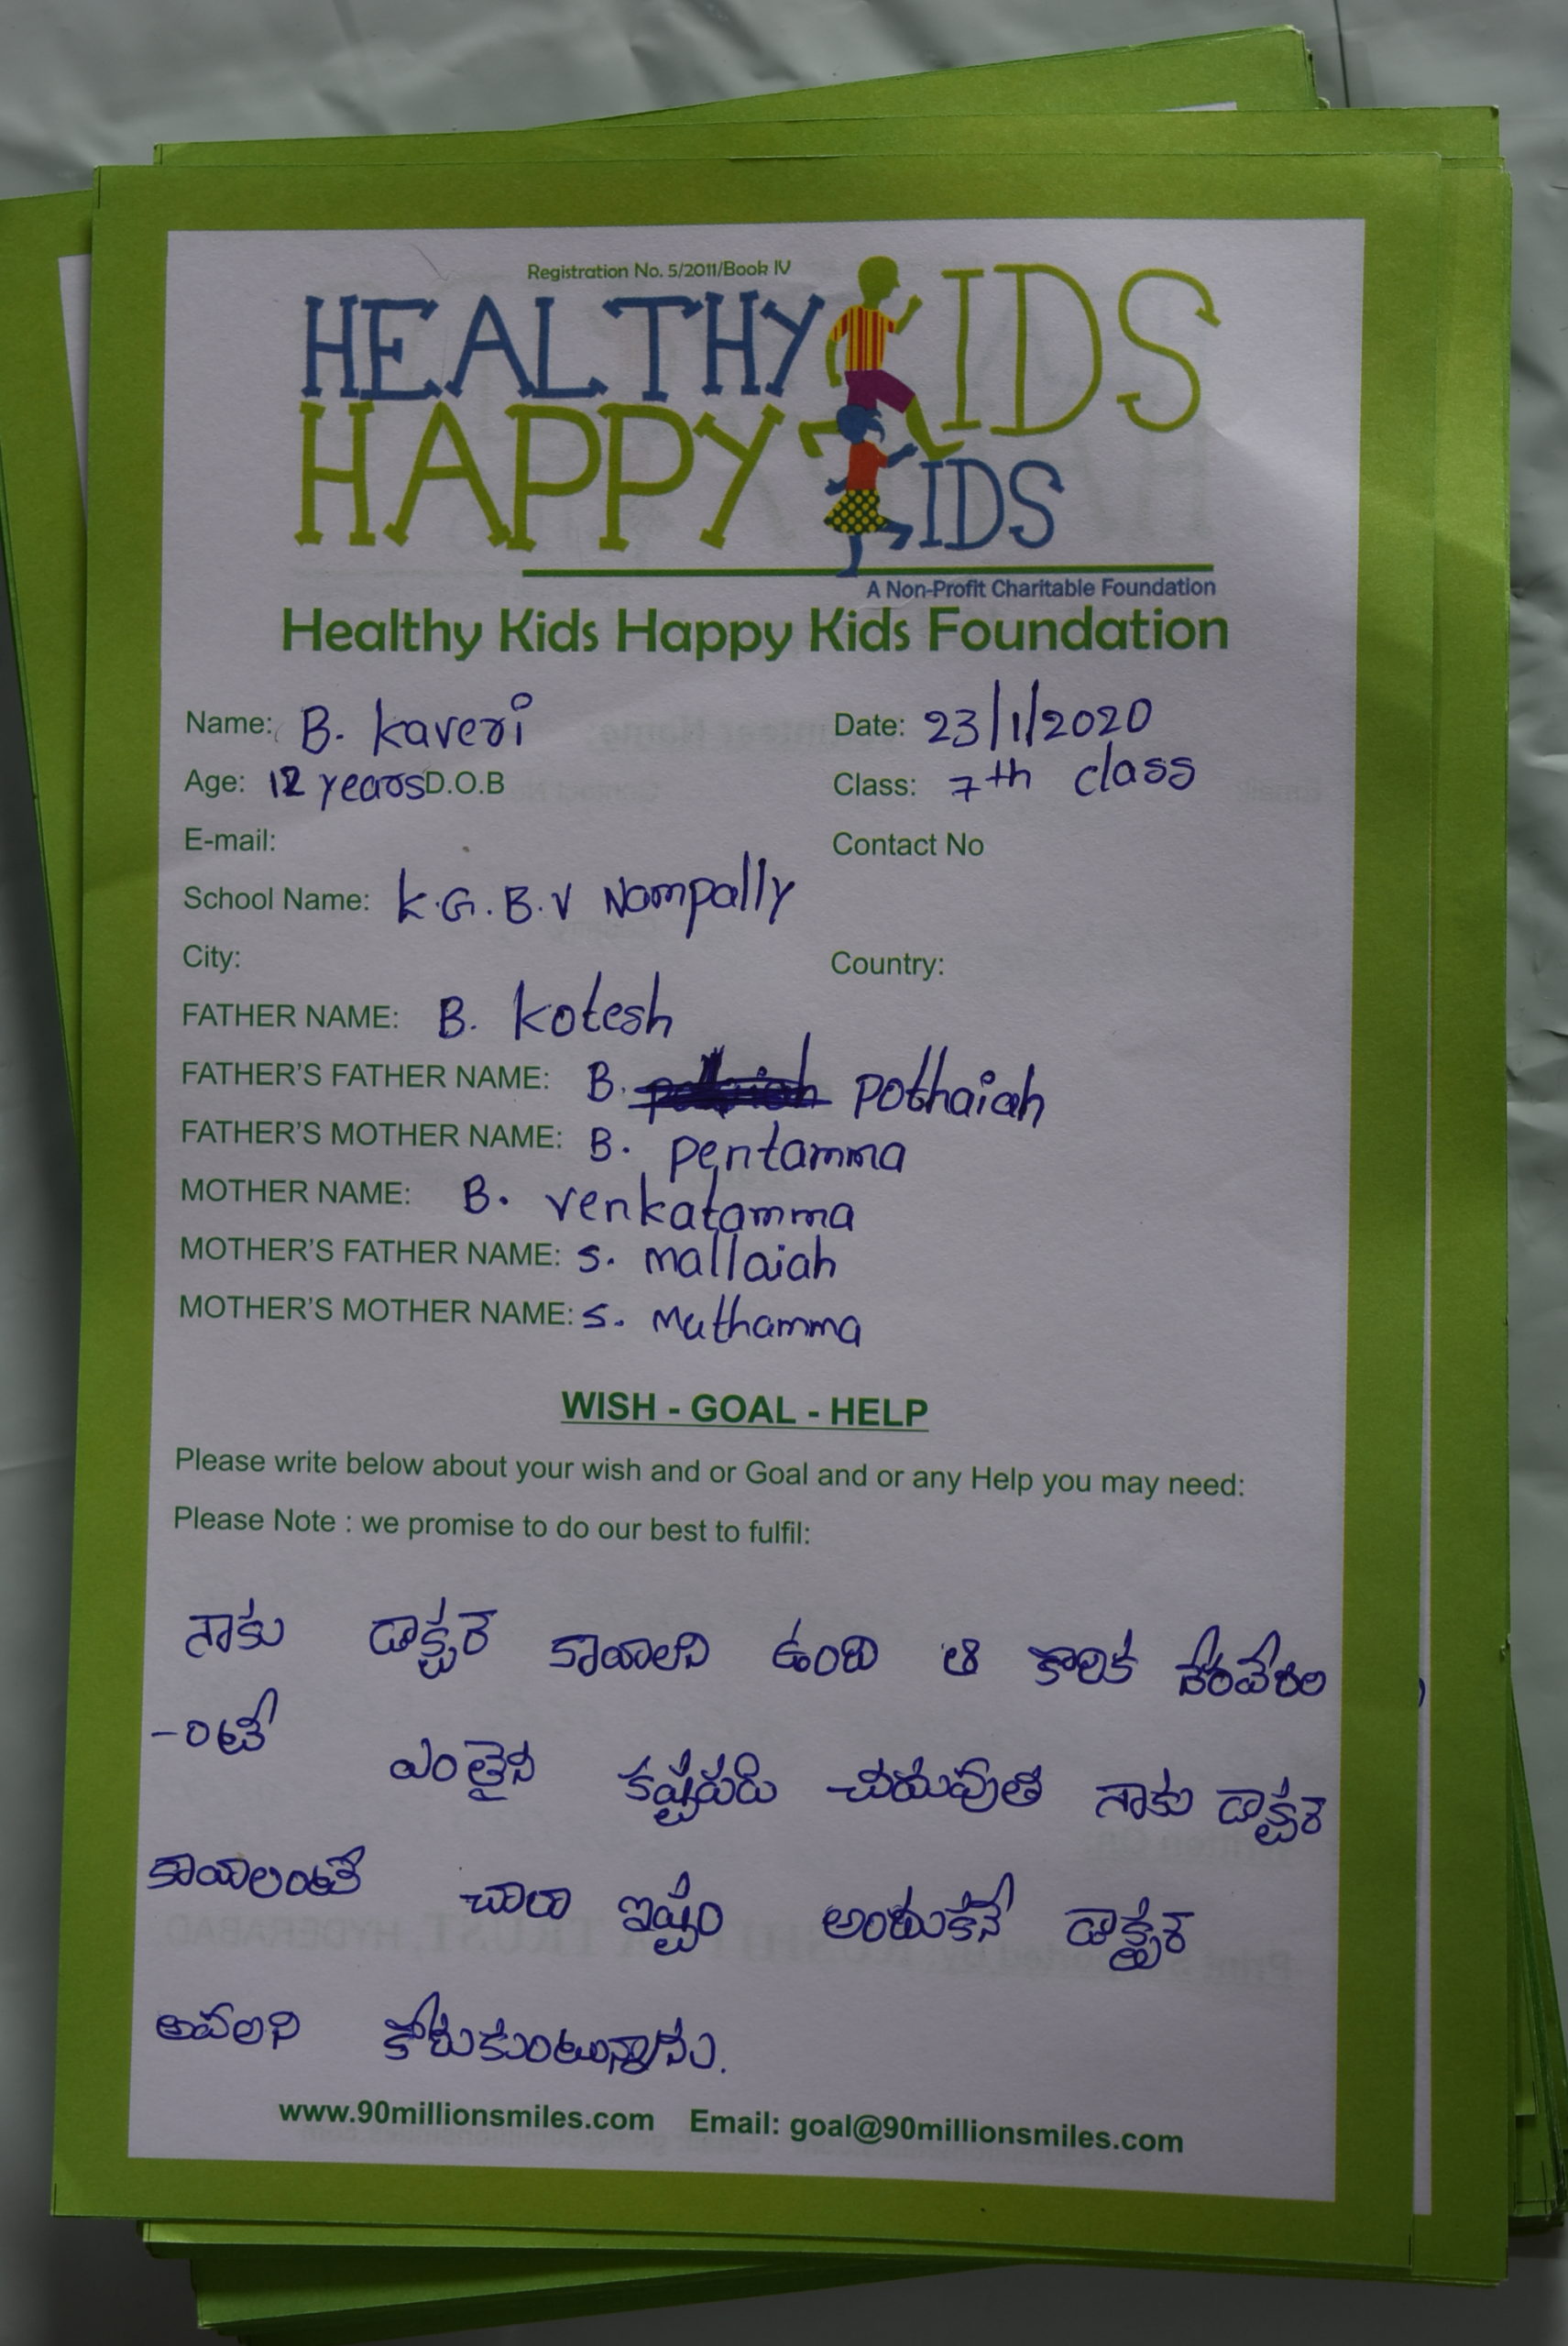 Registration No. 5/2011/Book IV
HEALTHY KIDS
HAPPY KIDS
A Non-Profit Charitable Foundation
Healthy Kids Happy Kids Foundation
Name: B. Kaveri Date: 23/1/2020
Age: 12 years D.O.B Class: 7th class
E-mail: Contact No
School Name: K.G.B.V Nampally
City: Country:
FATHER NAME: B. Kotesh
FATHER'S FATHER NAME: B. pothaiah
FATHER'S MOTHER NAME: B. pentamma
MOTHER NAME: B. venkatamma
MOTHER'S FATHER NAME: S. mallaiah
MOTHER'S MOTHER NAME: S. muthamma
WISH - GOAL - HELP
Please write below about your wish and or Goal and or any Help you may need:
Please Note : we promise to do our best to fulfil:
నాకు డాక్టర్ కావాలని ఉంది ఆ కొరిక నేరవేరల
-ంటే ఎంతైన కష్టపడి చదువుత నాకు డాక్టర్
కావాలంటే చాలా ఇష్టం అందుకనే డాక్టర్
అవలని కోరుకుంటున్నాను.
www.90millionsmiles.com Email: goal@90millionsmiles.com